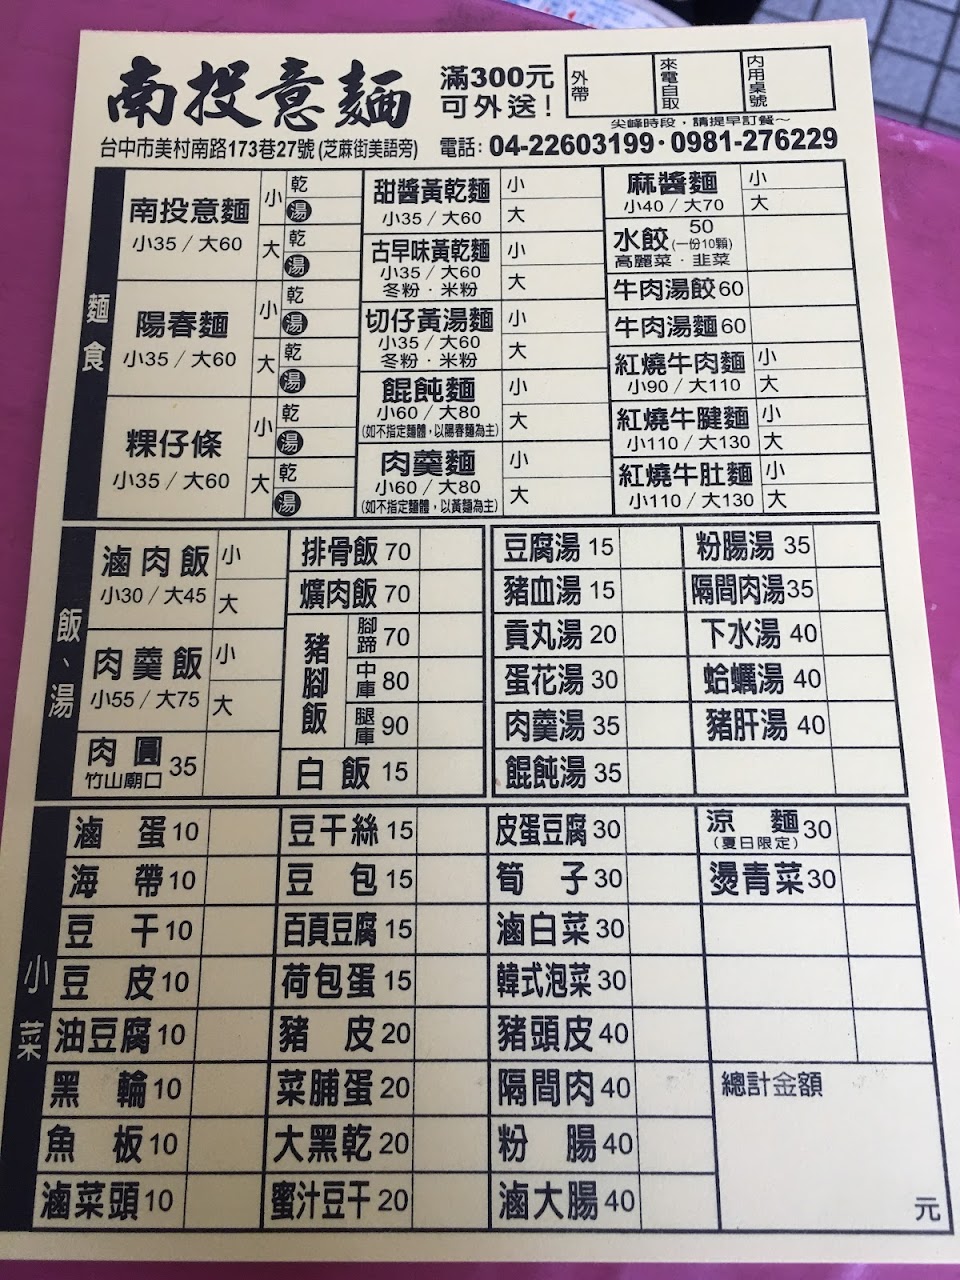 南投意麵
滿300元
可外送!
外帶
來電自取
內用桌號
尖峰時段,請提早訂餐~
台中市美村南路173巷27號(芝麻街美語旁)
電話:04-22603199·0981-276229
麵食
南投意麵
小35/大60
小 乾
湯
大 乾
湯
陽春麵
小35/大60
小 乾
湯
大 乾
湯
粿仔條
小35/大60
小 乾
湯
大 乾
湯
甜醬黃乾麵
小35/大60
小
大
古早味黃乾麵
小35/大60
冬粉·米粉
小
大
切仔黃湯麵
小35/大60
冬粉·米粉
小
大
餛飩麵
小60/大80
(如不指定麵體,以陽春麵為主)
小
大
肉羹麵
小60/大80
(如不指定麵體,以黃麵為主)
小
大
麻醬麵
小40/大70
小
大
水餃 50
(一份10顆)
高麗菜·韭菜
牛肉湯餃60
牛肉湯麵60
紅燒牛肉麵
小90/大110
小
大
紅燒牛腱麵
小110/大130
小
大
紅燒牛肚麵
小110/大130
小
大
飯、湯
滷肉飯
小30/大45
小
大
肉羹飯
小55/大75
小
大
肉圓 35
竹山廟口
排骨飯 70
爌肉飯 70
豬腳飯
腳蹄 70
中庫 80
腿庫 90
白飯 15
豆腐湯 15
豬血湯 15
貢丸湯 20
蛋花湯 30
肉羹湯 35
餛飩湯 35
粉腸湯 35
隔間肉湯35
下水湯 40
蛤蠣湯 40
豬肝湯 40
小菜
滷蛋10
海帶10
豆干10
豆皮10
油豆腐10
黑輪10
魚板10
滷菜頭10
豆干絲15
豆包15
百頁豆腐15
荷包蛋15
豬皮20
菜脯蛋20
大黑乾20
蜜汁豆干20
皮蛋豆腐30
筍子30
滷白菜30
韓式泡菜30
豬頭皮40
隔間肉40
粉腸40
滷大腸40
涼麵30
(夏日限定)
燙青菜30
總計金額
元